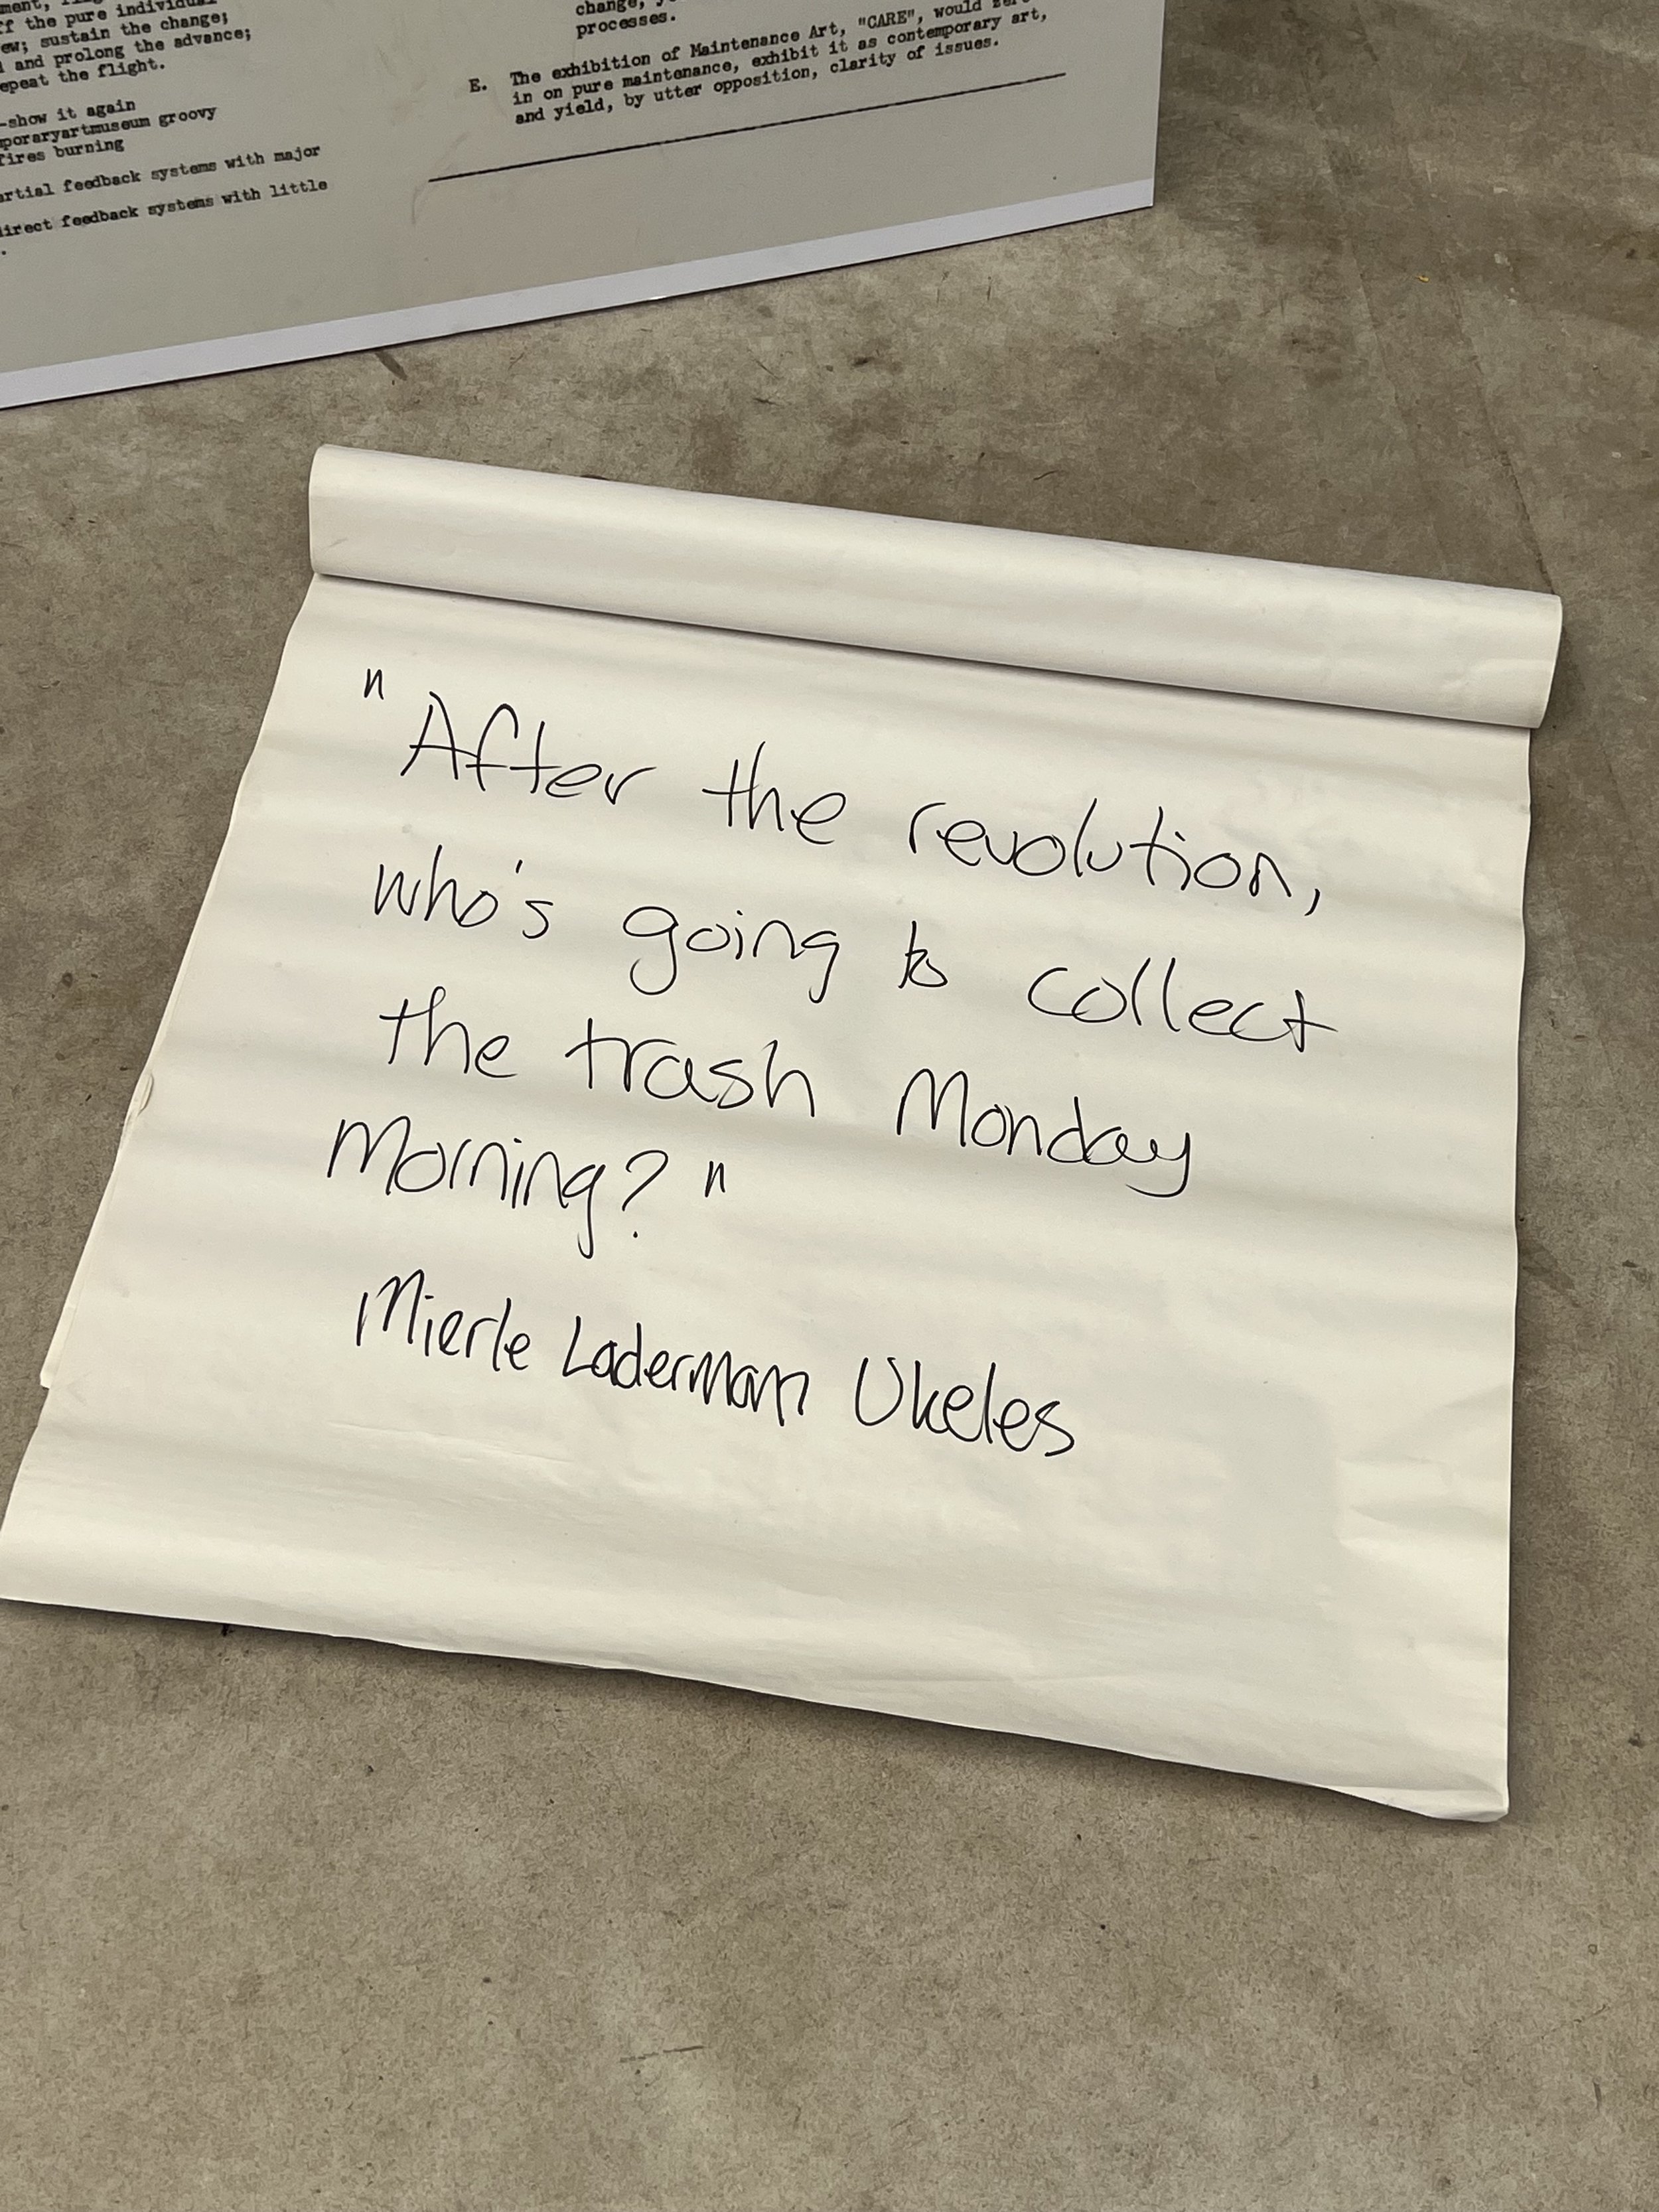 ff the pure individual
ew; sustain the change;
and prolong the advance;
epeat the flight.
-show it again
poraryartmuseum groovy
fires burning
artial feedback systems with major
direct feedback systems with little
change,
processes.
E. The exhibition of Maintenance Art, "CARE", would zero
in on pure maintenance, exhibit it as contemporary art,
and yield, by utter opposition, clarity of issues.
"After the revolution,
who's going to collect
the trash Monday
Morning?"
Mierle Laderman Ukeles